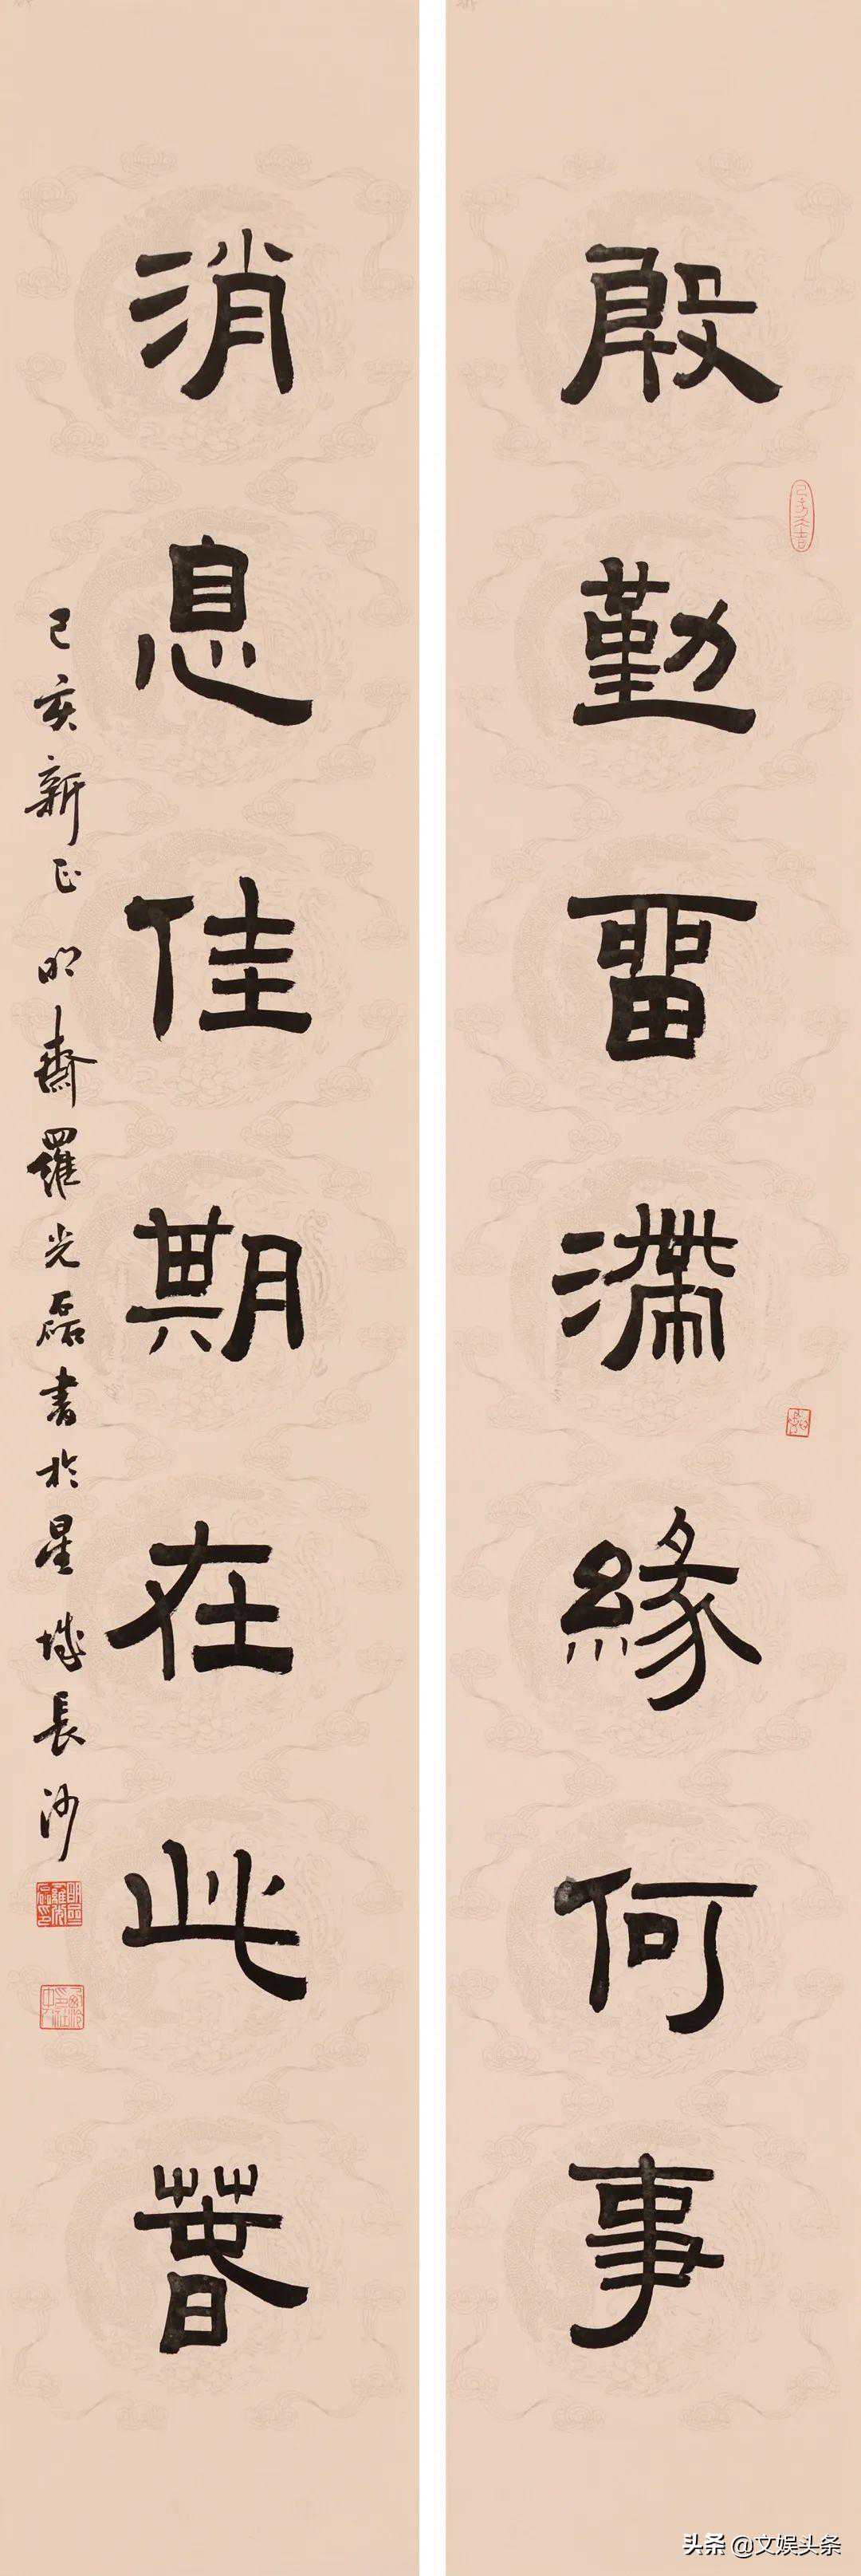 殷勤畱滯緣何事
消息佳期在此萅
己亥新正明齋羅光磊書於星城長沙
头条 @文娱头条